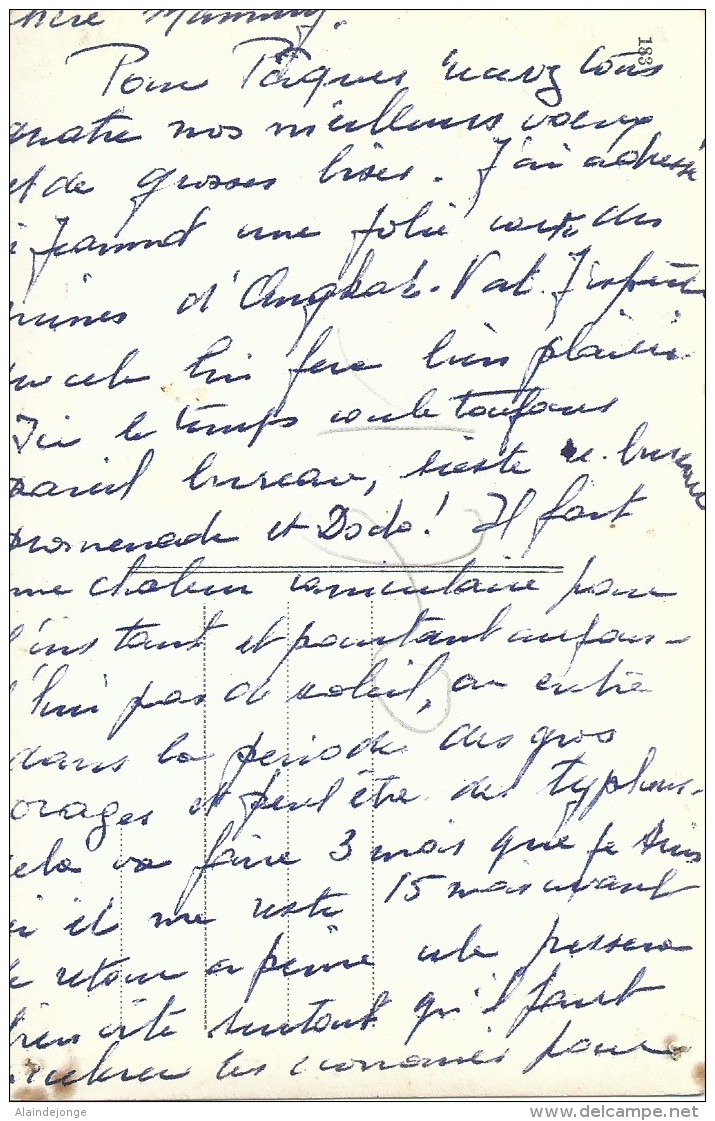 chère Mammy.
183
Pour Pâques recevez tous
quatre nos meilleurs voeux
et de grosses bises. J'ai adressé
à Jeannot une jolie carte des
ruines d'Angkor-Vat. J'espère
que cela lui fera bien plaisir
Ici le temps coule toujours
pareil bureau, sieste re. bureau
promenade et Dodo! Il fait
une chaleur caniculaire pour
l'instant et pourtant aujour-
d'hui pas de soleil, on entre
dans la période des gros
orages et peut être des typhons.
cela va faire 3 mois que je suis
ici il me reste 15 mois avant
le retour a peine cela passera
bien vite surtout qu'il faut
les économies pour
Alaindejonge
delcampe.net